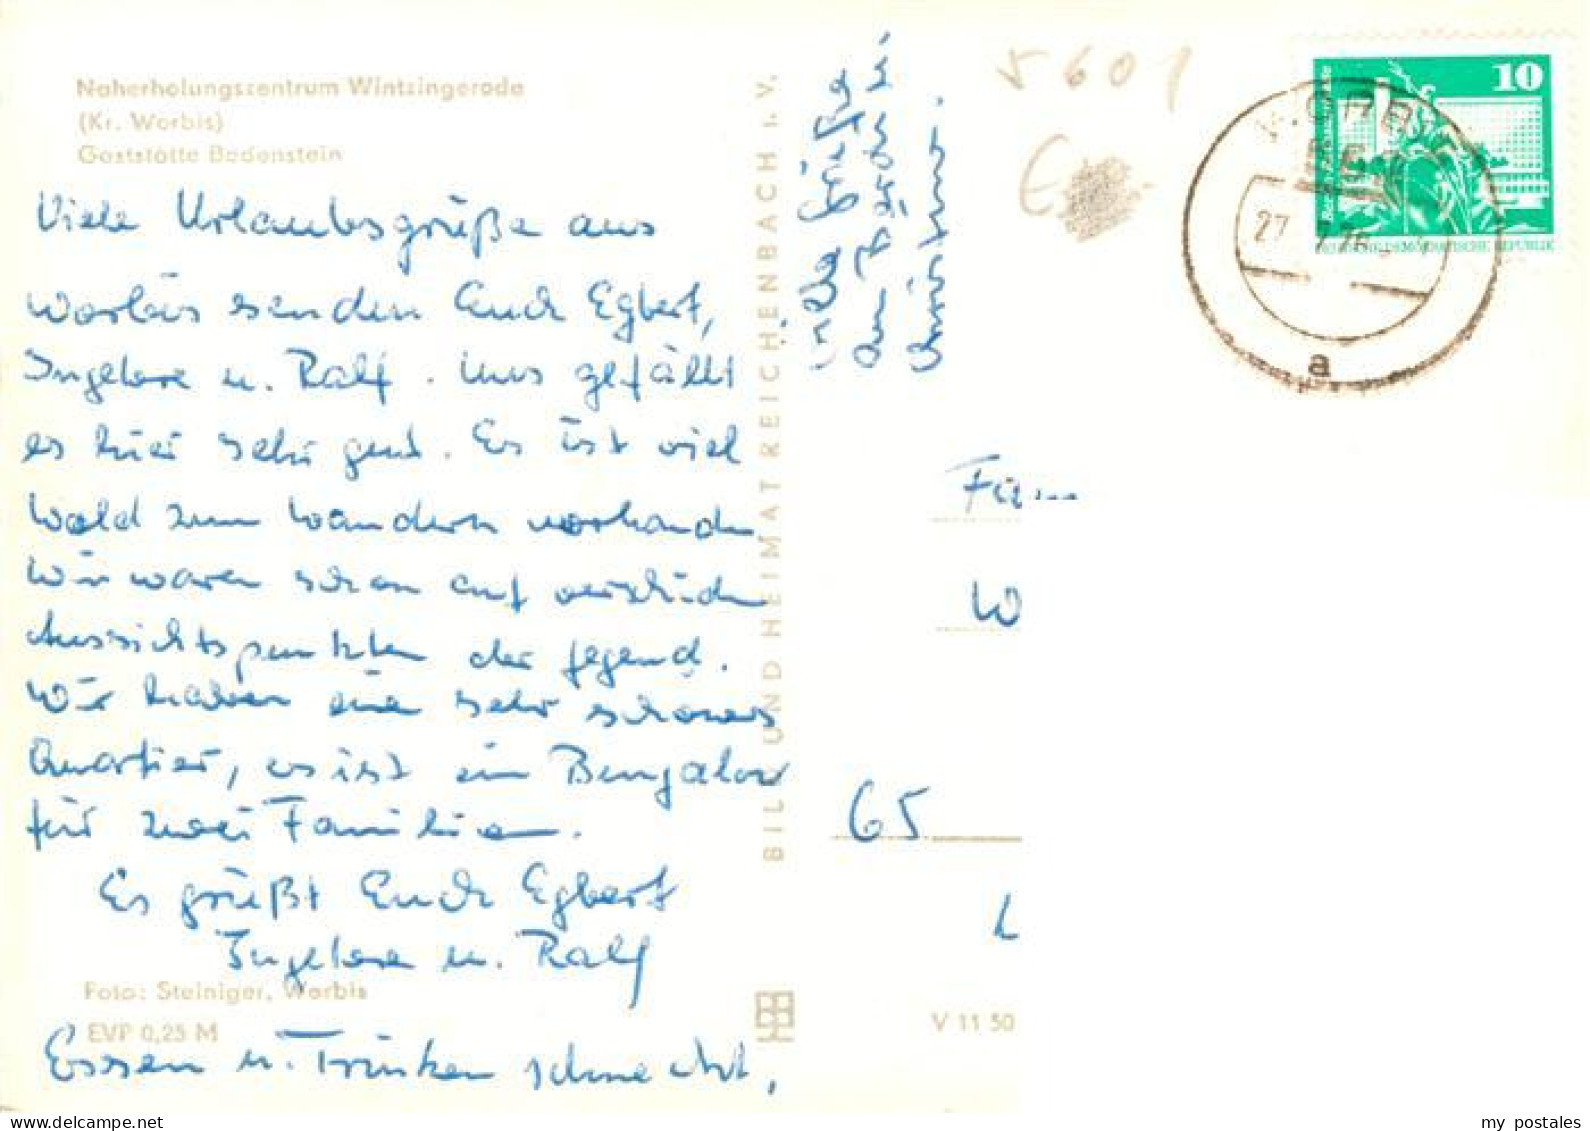 Naherholungszentrum Wintzingerode
(Kr. Worbis)
Gaststätte Bodenstein
Viele Urlaubsgrüße aus
Worbis senden Euch Egbert,
Ingelore u. Ralf. Uns gefällt
es hier sehr gut. Es ist viel
Wald zum Wandern vorhanden
Wir waren schon auf
Aussichtspunkten der Gegend.
Wir haben ein sehr schönes
Quartier, es ist ein Bungalow
für zwei Familien.
Es grüßt Euch Egbert
Ingelore u. Ralf
Foto: Steiniger, Worbis
EVP 0,25 M
Essen u. Trinken schmeckt,
BILD UND HEIMAT REICHENBACH I. V.
V 11 50
Viele Grüße
an
5601
10
DEUTSCHE DEMOKRATISCHE REPUBLIK
WORBIS
27
a
Fam
W
65
L
my postales